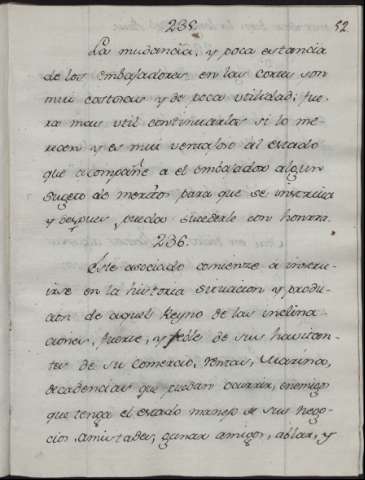 235. 52
La mudancia, y poca estancia
de los embajadores en las cortes, son
mui costosas y de poca utilidad; fue-
ra mas util continuarlos si lo me-
recen y es mui ventajoso al estado
que acompañe a el embajador algun
sugeto de merito para que se instruia
y despues pueda sucederle con honra.
236.
Este asociado comienze a instru-
irse en la historia situacion y produc-
cion de aquel Reyno de las inclina-
ciones, fuerze, y de sus havitan-
tes de su comercio, rentas, Marina,
decadencias que puedan ocurrir, enemigos
que tenga el estado manejo de sus nego-
cios amistades, ganar amigos, ablar, y